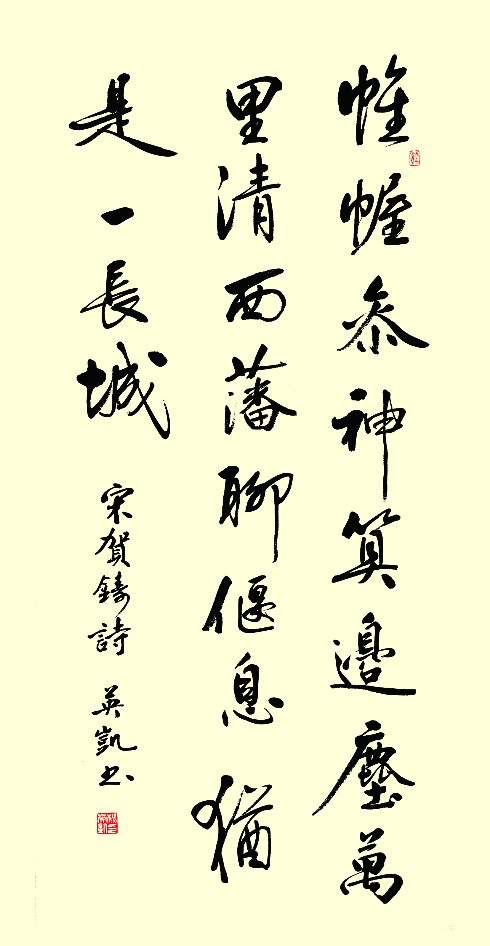 帷幄叅神算邊塵萬
里清西藩聊偃息猶
是一長城
宋賀鑄詩 英凱书